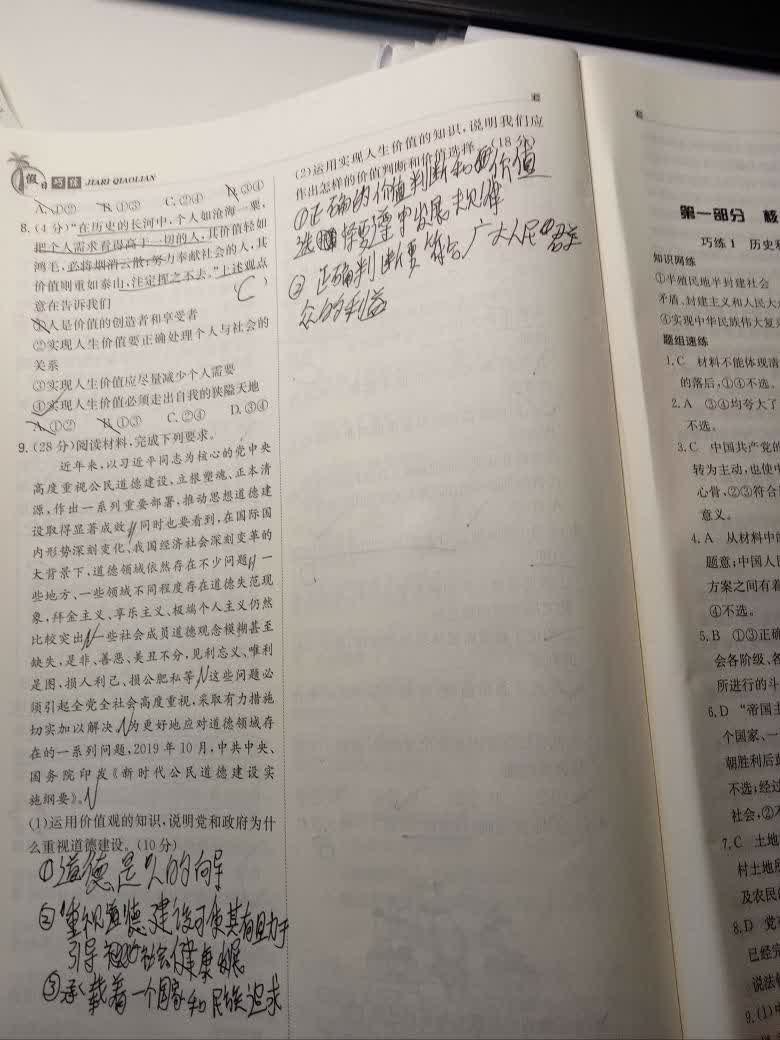 假日巧练 JIARI QIAOLIAN
A.①② B.①③ C.②④ D.③④
8.(4分)“在历史的长河中,个人如沧海一粟,
把个人需求看得高于一切的人,其价值轻如
鸿毛,必将烟消云散;努力奉献社会的人,其
价值则重如泰山,注定挥之不去。”上述观点
意在告诉我们 (C)
①人是价值的创造者和享受者
②实现人生价值要正确处理个人与社会的
关系
③实现人生价值应尽量减少个人需要
④实现人生价值必须走出自我的狭隘天地
A.①② B.①③ C.②④ D.③④
9.(28分)阅读材料,完成下列要求。
近年来,以习近平同志为核心的党中央
高度重视公民道德建设,立根塑魂、正本清
源,作出一系列重要部署,推动思想道德建
设取得显著成效。同时也要看到,在国际国
内形势深刻变化、我国经济社会深刻变革的
大背景下,道德领域依然存在不少问题。一
些地方、一些领域不同程度存在道德失范现
象,拜金主义、享乐主义、极端个人主义仍然
比较突出;一些社会成员道德观念模糊甚至
缺失,是非、善恶、美丑不分,见利忘义、唯利
是图,损人利己、损公肥私等。这些问题必
须引起全党全社会高度重视,采取有力措施
切实加以解决。为更好地应对道德领域存
在的一系列问题,2019年10月,中共中央、
国务院印发《新时代公民道德建设实
施纲要》。
(1)运用价值观的知识,说明党和政府为什
么重视道德建设。(10分)
①道德是人的向导
②重视道德建设可使其有助力于
引导社会健康发展
③承载着一个国家和民族追求
(2)运用实现人生价值的知识,说明我们应
作出怎样的价值判断和价值选择。(18分)
①正确的价值判断和价值
选择要遵守发展规律
②正确判断要符合广大人民群
众的利益
第一部分 核
巧练1 历史和
知识网络
①半殖民地半封建社会
矛盾、封建主义和人民大
④实现中华民族伟大复
题组速练
1.C 材料不能体现清
的落后,①④不选。
2.A ③④均夸大了
不选。
3.C 中国共产党的
转为主动,也使中
心骨,②③符合
意义。
4.A 从材料中
题意;中国人
方案之间有着
④不选。
5.B ①③正确
会各阶级、各
所进行的斗
6.D “帝国主
个国家、一
朝胜利后
不选;经过
社会,②不
7.C 土地
村土地所
及农民
8.D 党
已经完
说法
9.(1)中